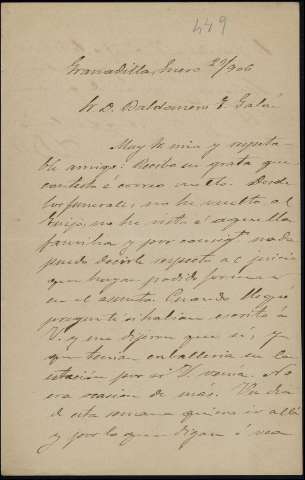 449
Granadilla, Enero 29/906
Sr. D. Baldomero G. Galán
Muy Sr. mio y respeta-
ble amigo: Recibo su grata que
contesto á correo vuelto. Desde
los funerales, no he vuelto al
Guijo, no he visto á aquella
familia y por consigte nada
puedo decirle respecto al juicio
que hayan podido formar
en el asunto. Cuando llegué
pregunté si habian escrito á
V. y me dijeron que si, y
que tenian caballeria en la
estación por si V. venía. No
era ocasion de más. Un dia
de esta semana quiero ir allá
y por lo que digan ó vea